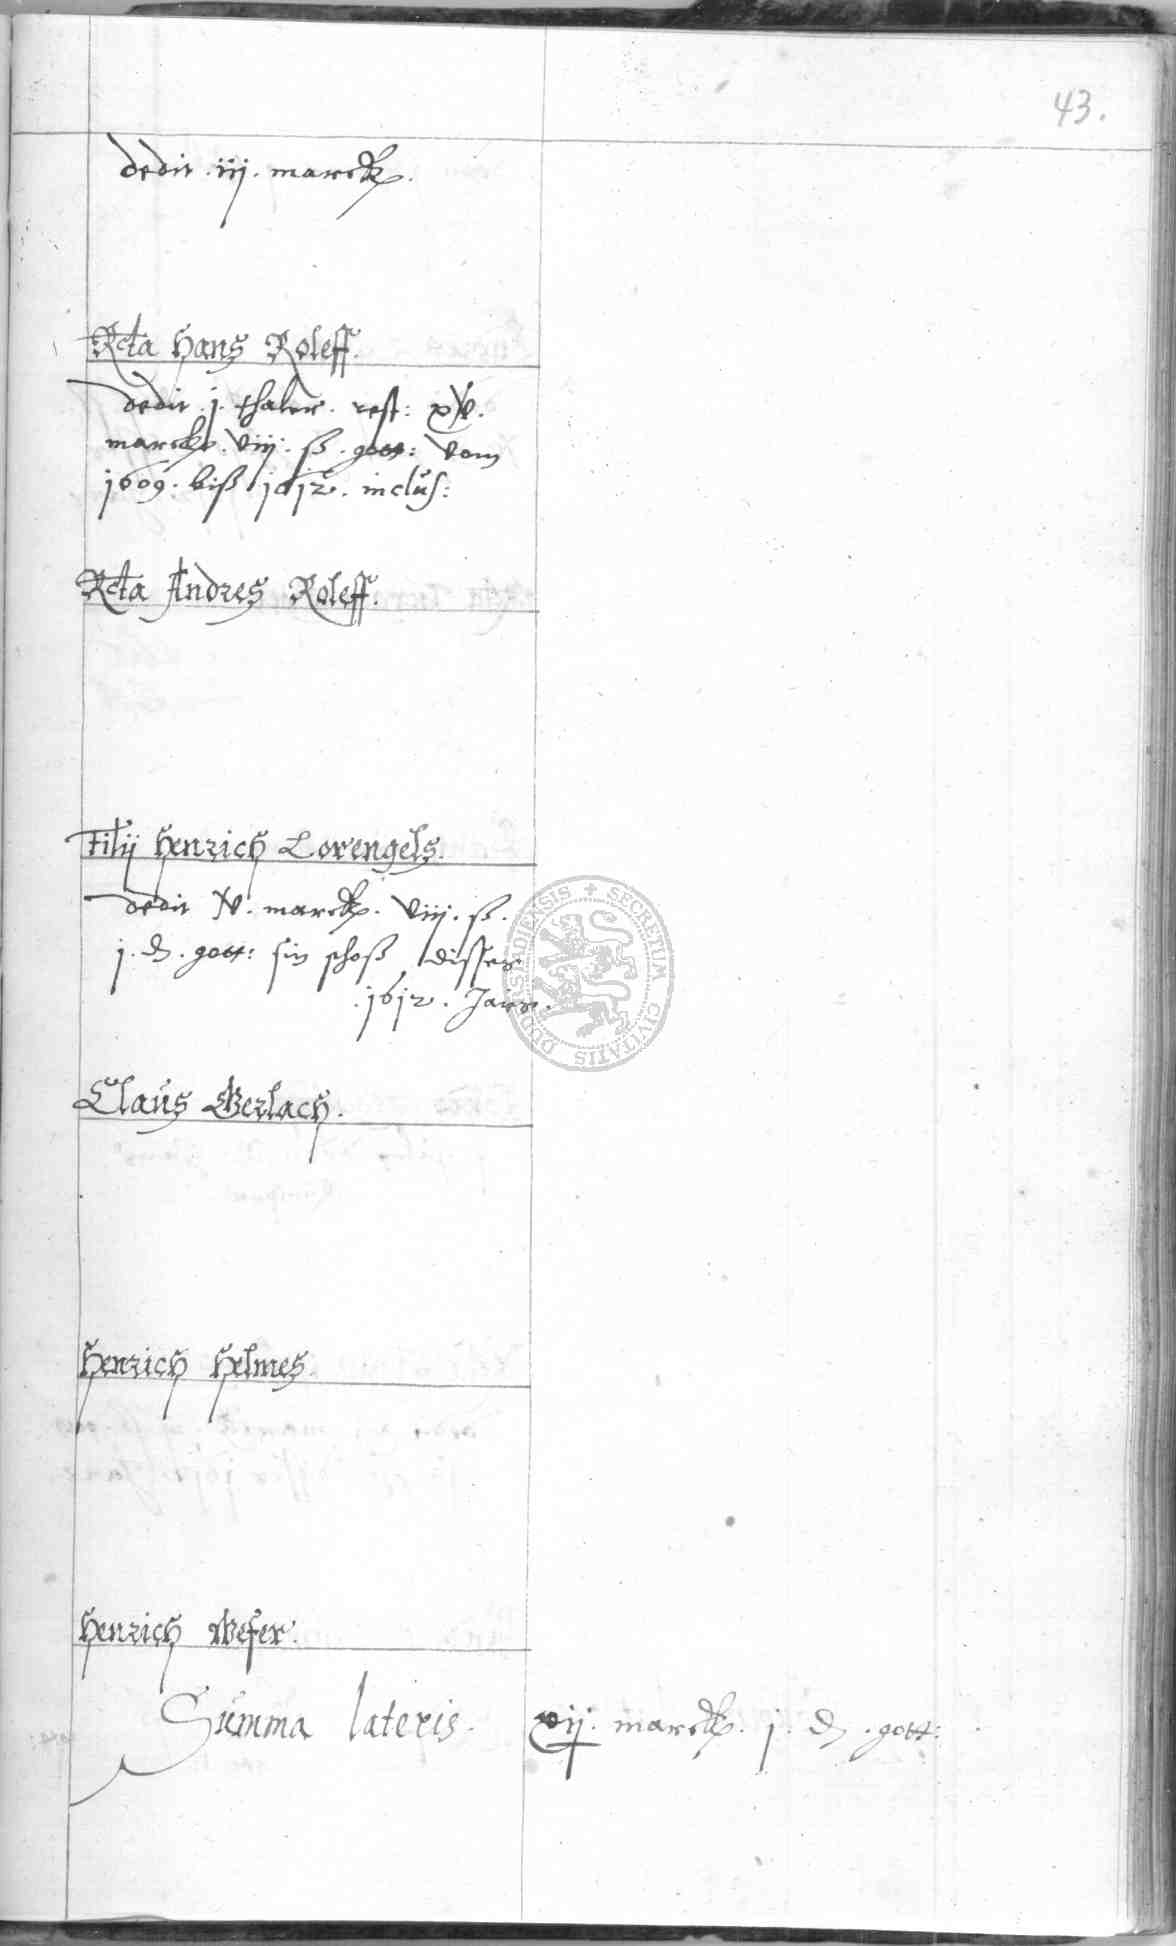 43.
dedit . iij . marck .
Rcta Hans Roleff .
dedit . j . thaler . rest : xv .
marck . viij . ß . gott : vom
1609 . biß 1612 . inclus :
Rcta Andres Roleff .
Filij Henrich Lorengels .
dedit iv . marck . viij . ß .
j . d . gott : sin schoß disser
. 1612 . Jarr .
Claus Gerlach .
Henrich Helmes .
Henrich Wefer .
Summa lateris . xij . marck . j . d . gott :
SECRETUM CIVITATIS DUDERSTADIENSIS